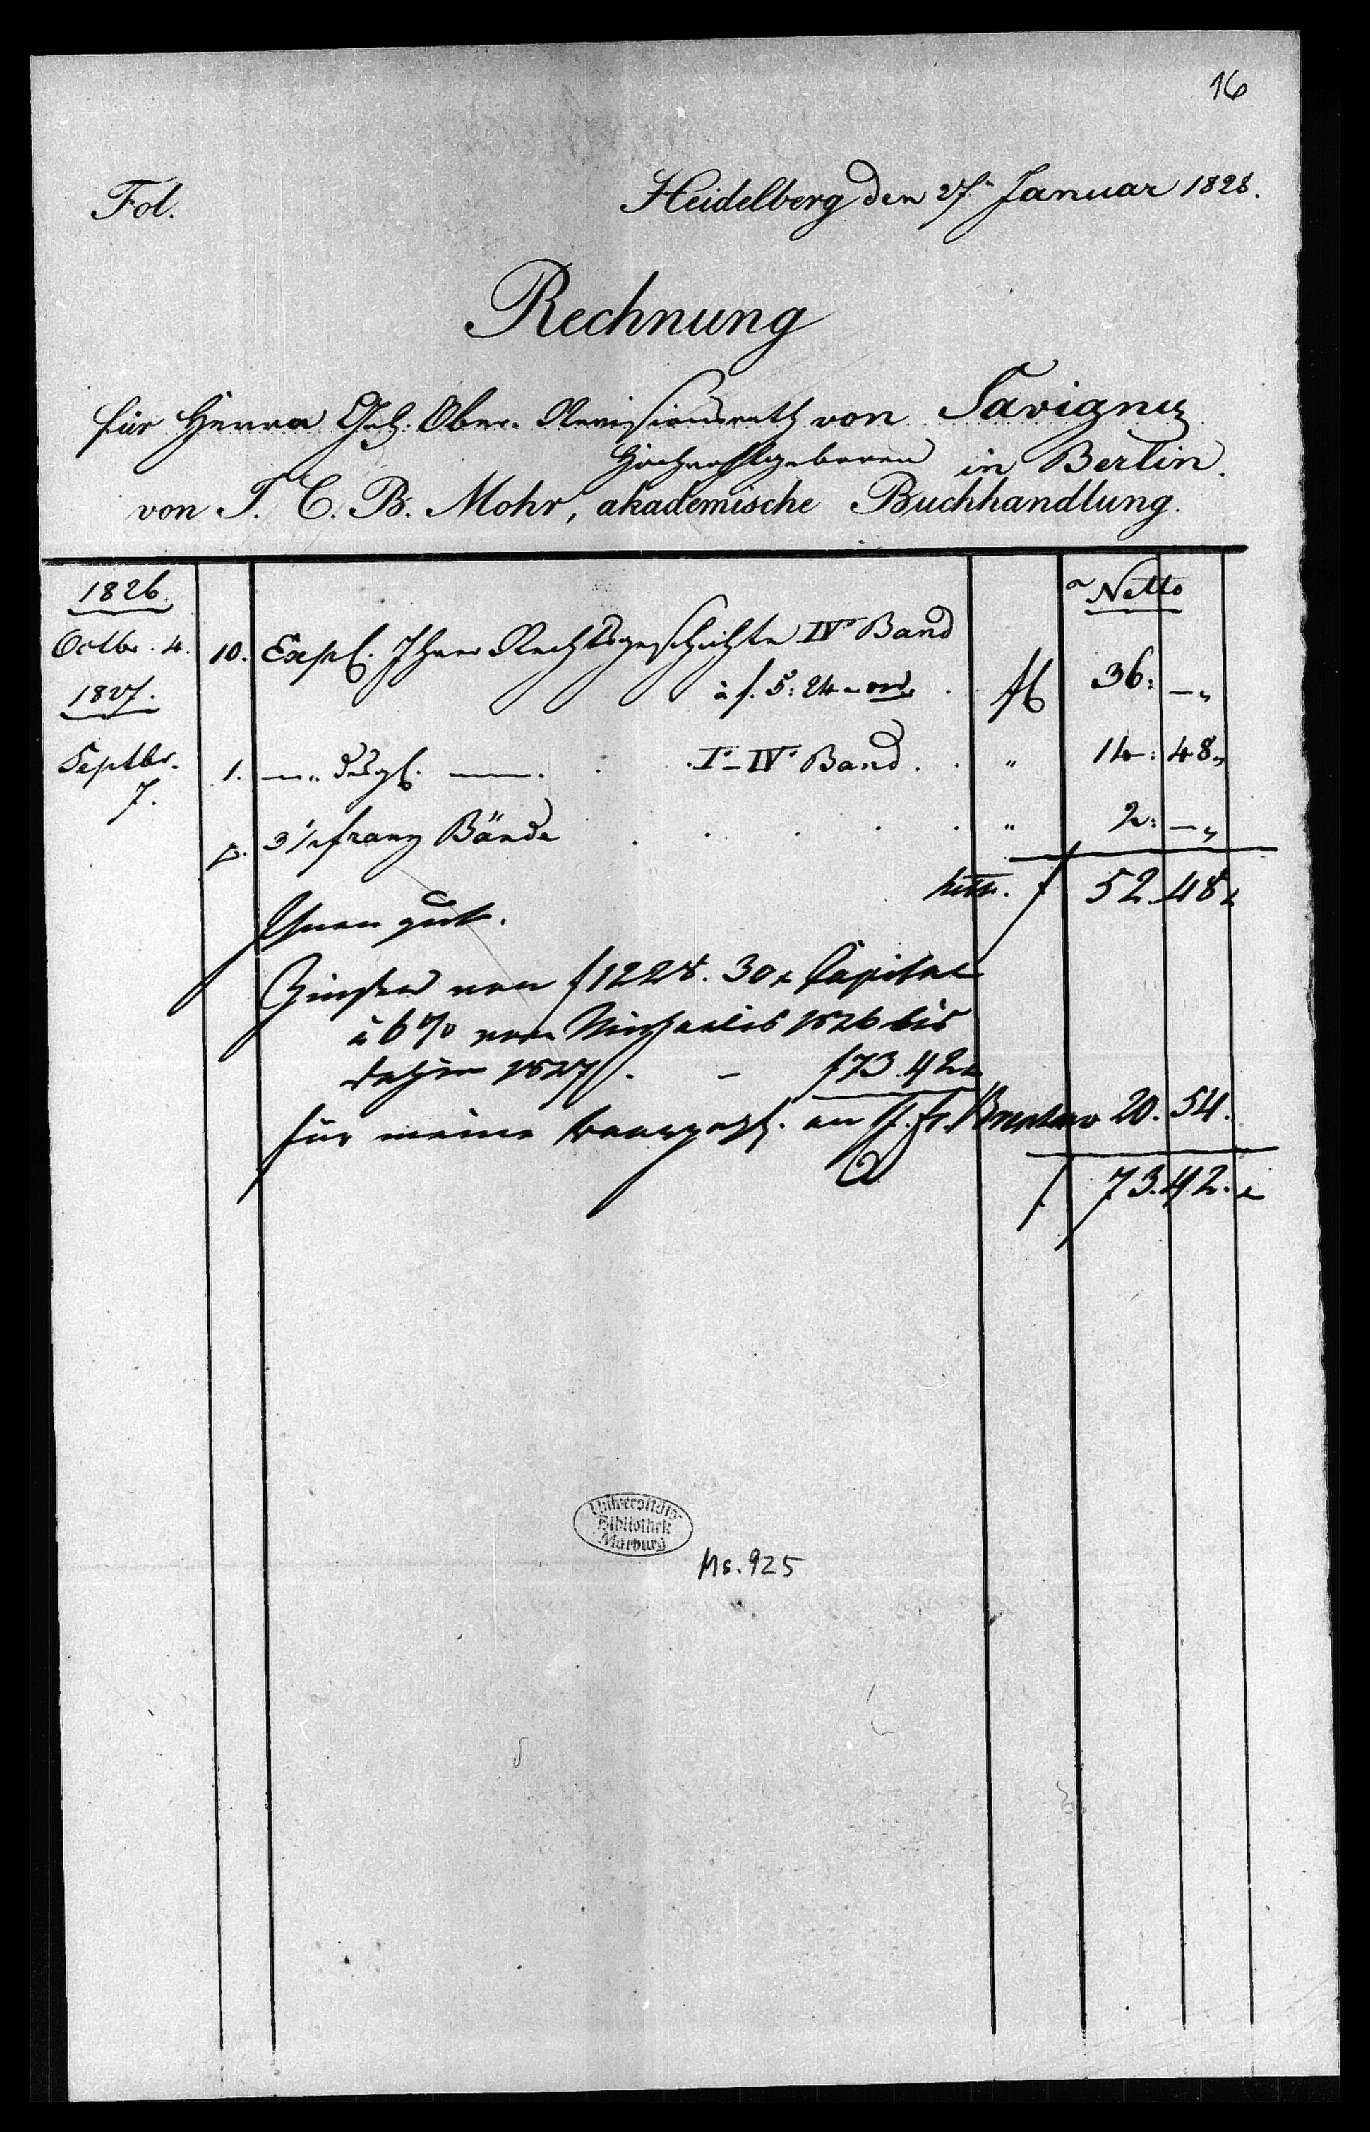 16
Fol. Heidelberg den 27n Januar 1828.
Rechnung
für Herrn Geh. Ober-Revisionsrath von Savigny
Hochwohlgeboren in Berlin.
von J. C. B. Mohr, akademische Buchhandlung.
1826. Netto
Octbr. 4. 10. Expl. Ihrer Rechtsgeschichte IVr Band
1827. à f. 5: 24 ord. fl 36: —„
Septbr. 7. 1. —„ desgl. — Ir–IVr Band . . „ 14: 48„
p. 3 1/2 franz Bände . . . . . „ 2: —„
f 52. 48x
Ihnen gut.
Zinsen von f 1228. 30x Capital
à 6 % von Michaelis 1826 bis
dahin 1827. – f 73. 42x
für meine baarzahl. an H. Fr. 20. 54.
f 73. 42. x
Universitäts-
Bibliothek
Marburg
Ms. 925